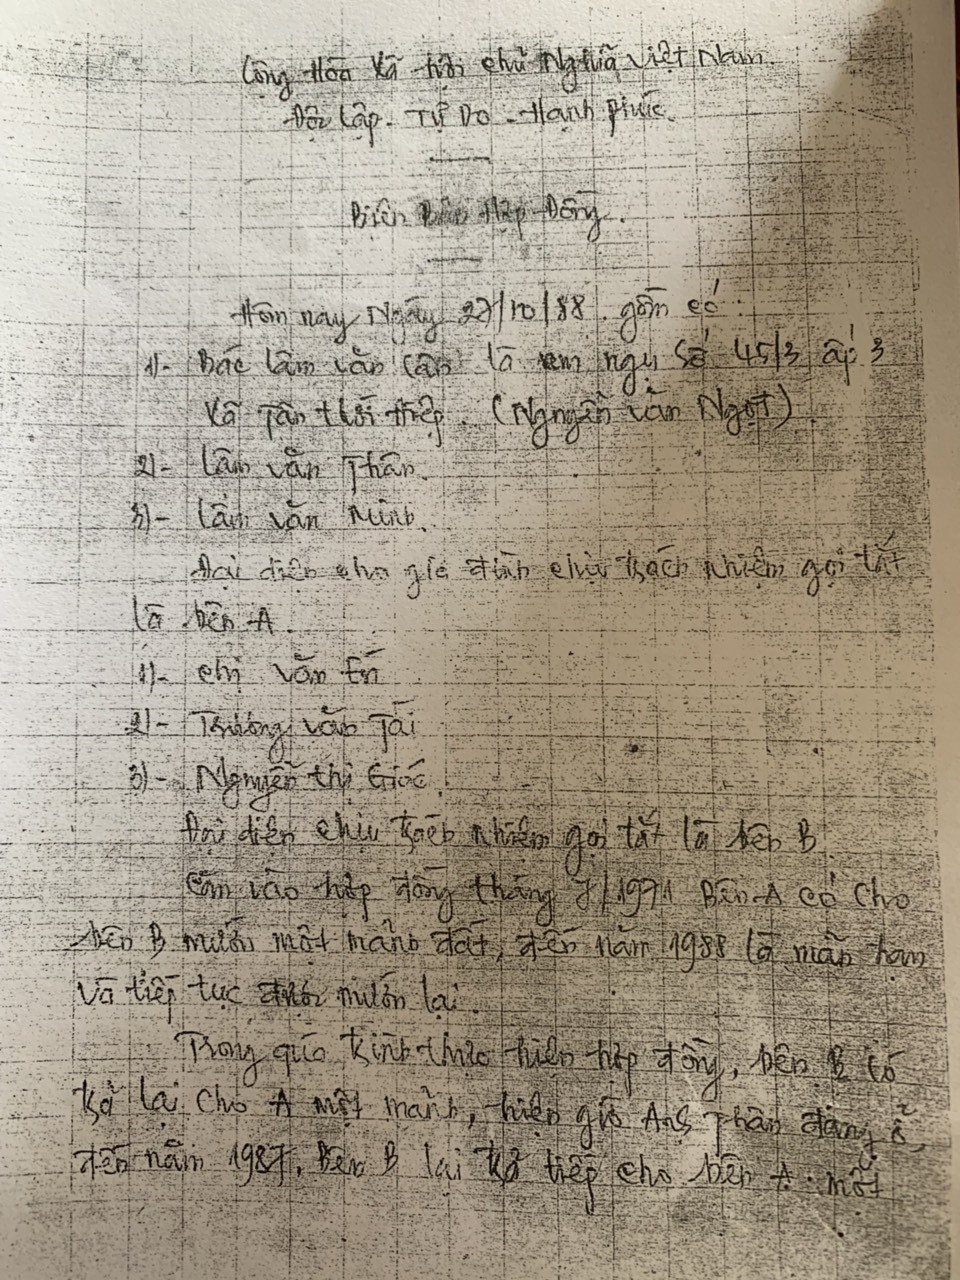 Cộng Hòa Xã hội chủ Nghĩa Việt Nam.
Độc lập - Tự Do - Hạnh phúc.
Biên Bản Hợp Đồng.
Hôm nay Ngày 27/10/88. gồm có:
1)- Bác lâm văn là em ngụ số 45/3 ấp 3
Xã Tân thới Hiệp. (Nguyễn văn Ngọt)
2)- lâm văn Thân.
3)- lâm văn Minh.
Đại diện cho gia đình chịu trách nhiệm gọi tắt
là bên A.
1)- chị văn Én
2)- Trương văn Tài
3)- Nguyễn thị Gióc.
Đại diện chịu trách nhiệm gọi tắt là bên B.
Căn vào hợp đồng tháng 7/1971 Bên A có cho
bên B mướn một mảnh đất, đến năm 1988 là mãn hạn
và tiếp tục mướn lại.
Trong quá trình thực hiện hợp đồng, bên B có
trả lại cho A một mảnh, hiện giờ Anh Thân đang ở,
đến năm 1987, Bên B lại trả tiếp cho bên A một